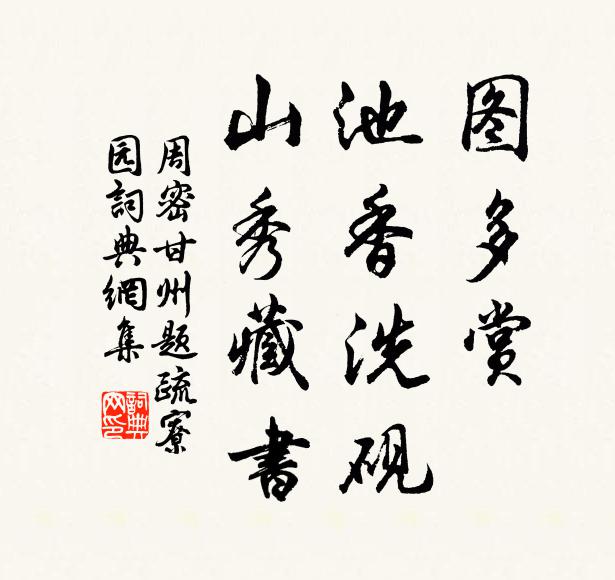 图多赏
池香洗砚
山秀藏書
周密甘州题疏寮
园詞典網集
詞典网印